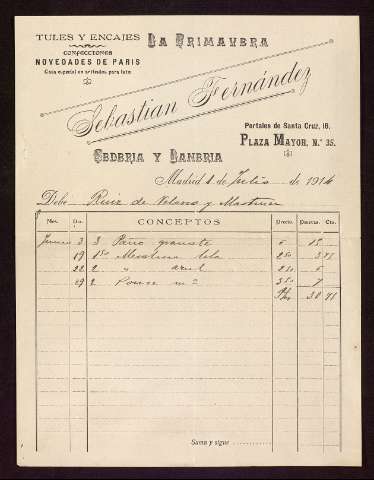 TULES Y ENCAJES
CONFECCIONES
NOVEDADES DE PARIS
Casa especial en artículos para luto
LA PRIMAVERA
Sebastian Fernández
Portales de Santa Cruz, 16.
PLAZA MAYOR, N.° 35.
SEDERIA Y LANERIA
Madrid 1 de Julio de 1914
Debe Ruiz de Velasco y Martinez
Mes. Dia. CONCEPTOS Precio. Pesetas. Cts.
3 3 Paño 5 15
19 1 50 Mesalina lila 2 50 3 75
22 2 " azul 2 50 5
29 2 3 50 7
Pts 30 75
Suma y sigue